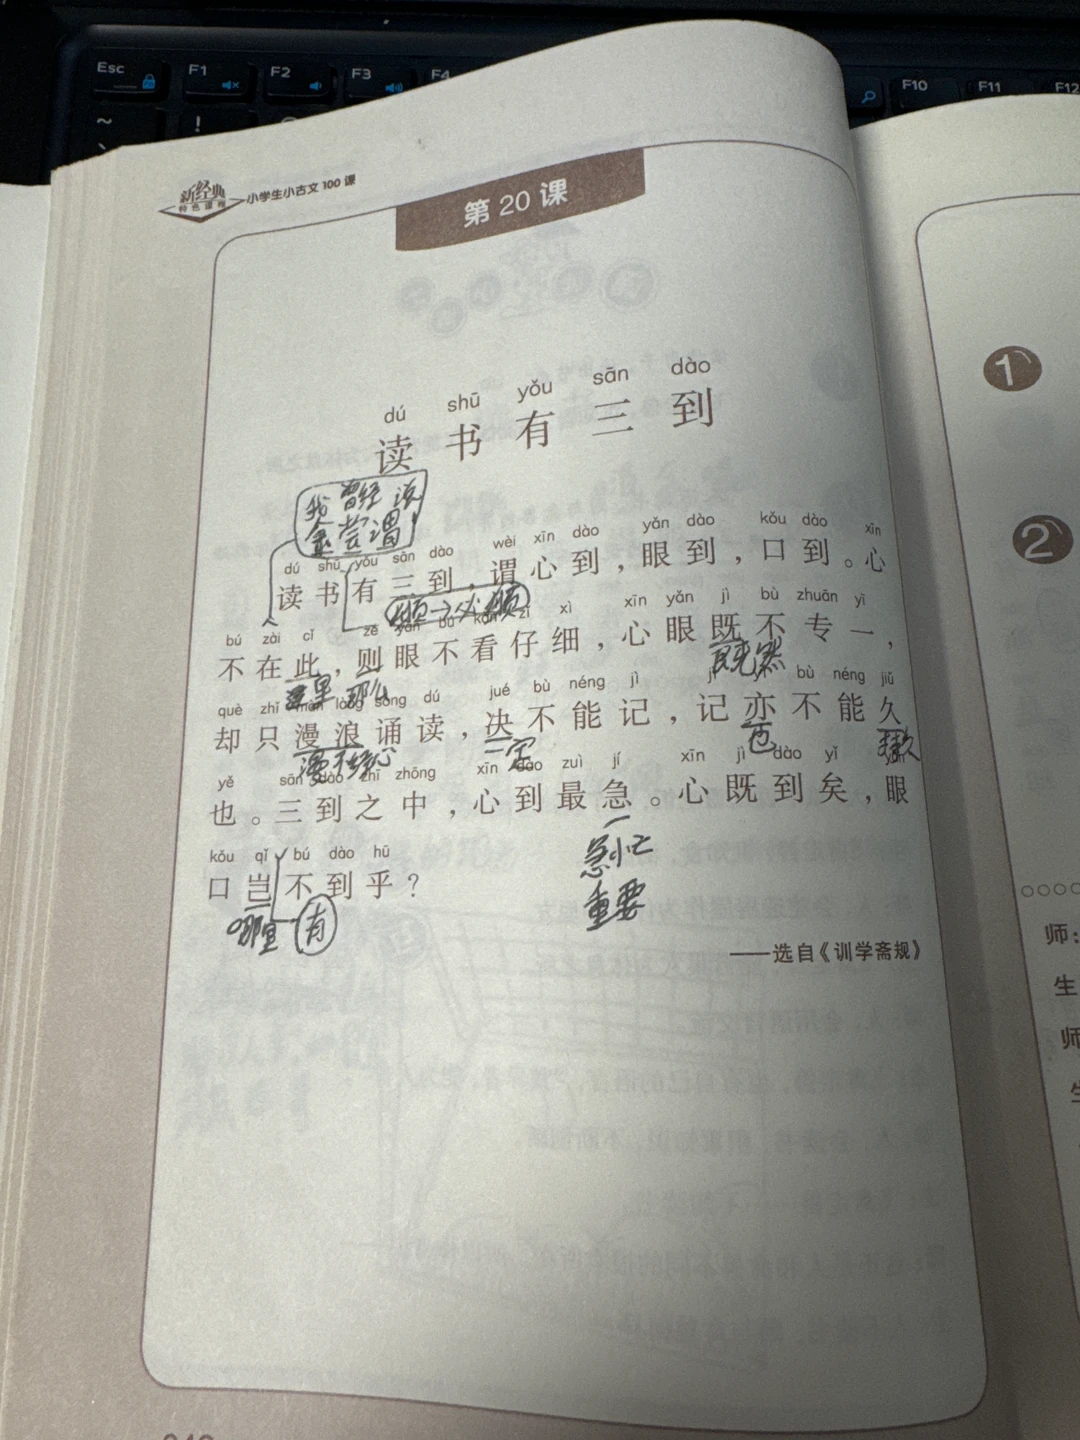 Esc F1 F2 F3 F4 F10 F11 F12
~ !
新经典 小学生小古文100课
特色课程
第20课
dú shū yǒu sān dào
读书有三到
我曾经说
余尝谓
dú shū yǒu sān dào wèi xīn dào yǎn dào kǒu dào xīn
读书有三到，谓心到，眼到，口到。心
须→必须
bú zài cǐ zé yǎn bú kàn zǐ xì xīn yǎn jì bù zhuān yī
不在此，则眼不看仔细，心眼既不专一，
这里 那么 既然
què zhǐ màn làng sòng dú jué bù néng jì jì bù néng jiǔ
却只漫浪诵读，决不能记，记亦不能久
漫不经心 一定 也
yě sān dào zhī zhōng xīn dào zuì jí xīn jì dào yǐ yǎn
也。三到之中，心到最急。心既到矣，眼
急忙
重要
kǒu qǐ bú dào hū
口岂不到乎？
哪里 有
——选自《训学斋规》
1
2
师：
生
师
生